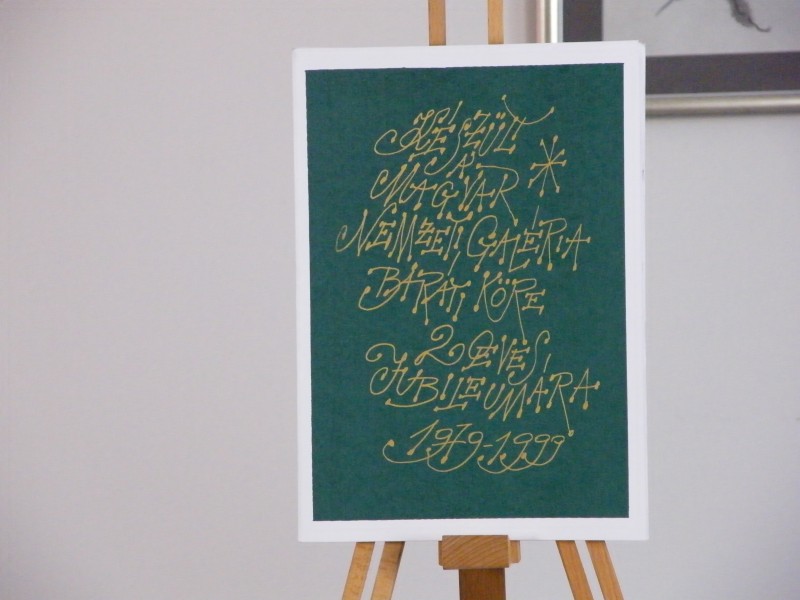 KÉSZÜLT
A
MAGYAR
NEMZETI GALÉRIA
BARÁTI KÖRE
20 ÉVES
JUBILEUMÁRA
1979-1999